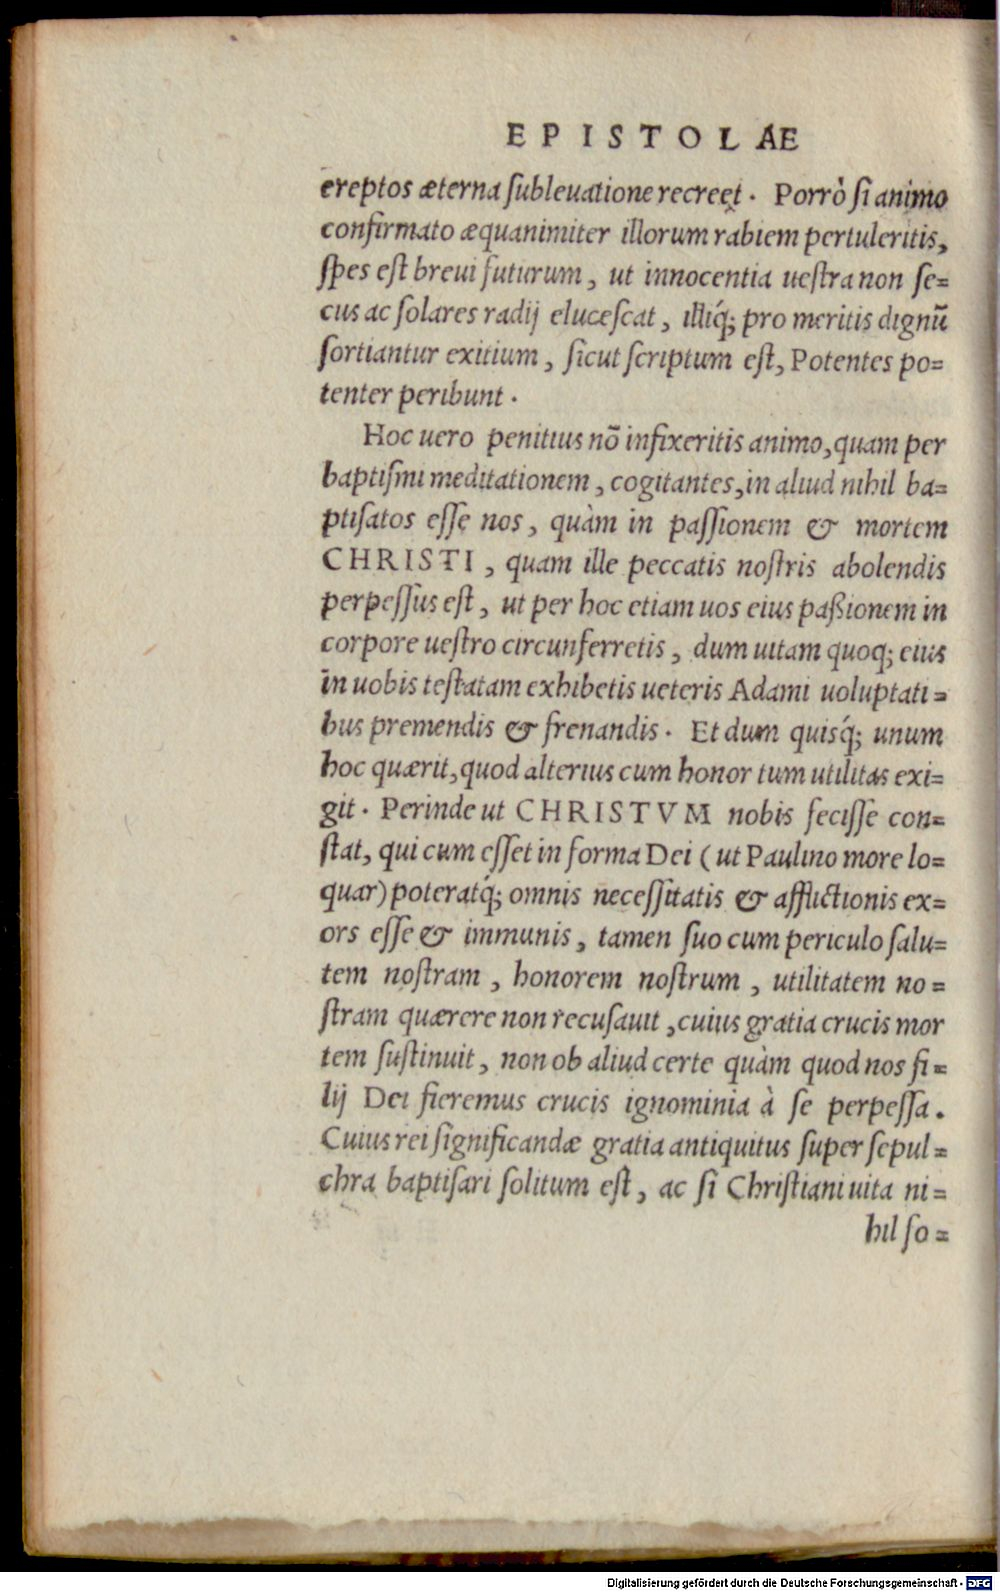 EPISTOLAE
ereptos æterna subleuatione recreet. Porrò si animo
confirmato æquanimiter illorum rabiem pertuleritis,
spes est breui futurum, ut innocentia uestra non se=
cus ac solares radij elucescat, illiq́; pro meritis dignũ
sortiantur exitium, sicut scriptum est, Potentes po=
tenter peribunt.
Hoc uero penitius nõ infixeritis animo, quam per
baptismi meditationem, cogitantes, in aliud nihil ba=
ptisatos esse nos, quàm in passionem & mortem
CHRISTI, quam ille peccatis nostris abolendis
perpessus est, ut per hoc etiam uos eius paßionem in
corpore uestro circunferretis, dum uitam quoq; eius
in uobis testatam exhibetis ueteris Adami uoluptati=
bus premendis & frenandis. Et dum quisq́; unum
hoc quærit, quod alterius cum honor tum utilitas exi=
git. Perinde ut CHRISTVM nobis fecisse con=
stat, qui cum esset in forma Dei (ut Paulino more lo=
quar) poteratq́; omnis necessitatis & afflictionis ex=
ors esse & immunis, tamen suo cum periculo salu=
tem nostram, honorem nostrum, utilitatem no=
stram quærere non recusauit, cuius gratia crucis mor
tem sustinuit, non ob aliud certe quàm quod nos fi=
lij Dei fieremus crucis ignominia à se perpessa.
Cuius rei significandæ gratia antiquitus super sepul=
chra baptisari solitum est, ac si Christiani uita ni=
hil so=
Digitalisierung gefördert durch die Deutsche Forschungsgemeinschaft - DFG